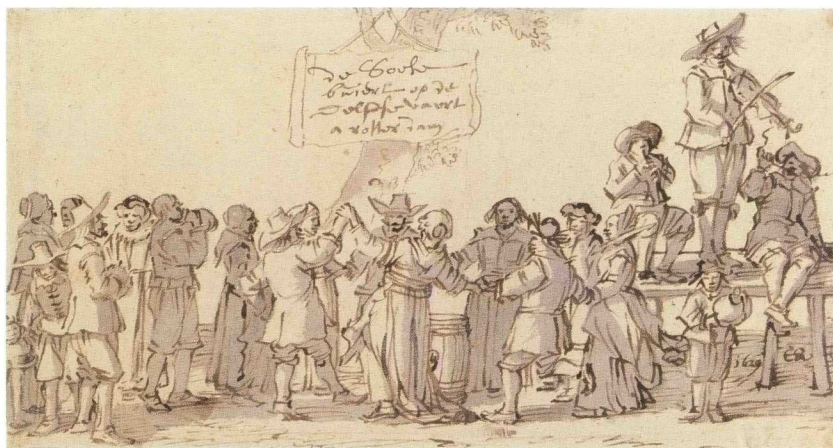 de Soete
buiert op de
Delfse vaert
a rotterdam